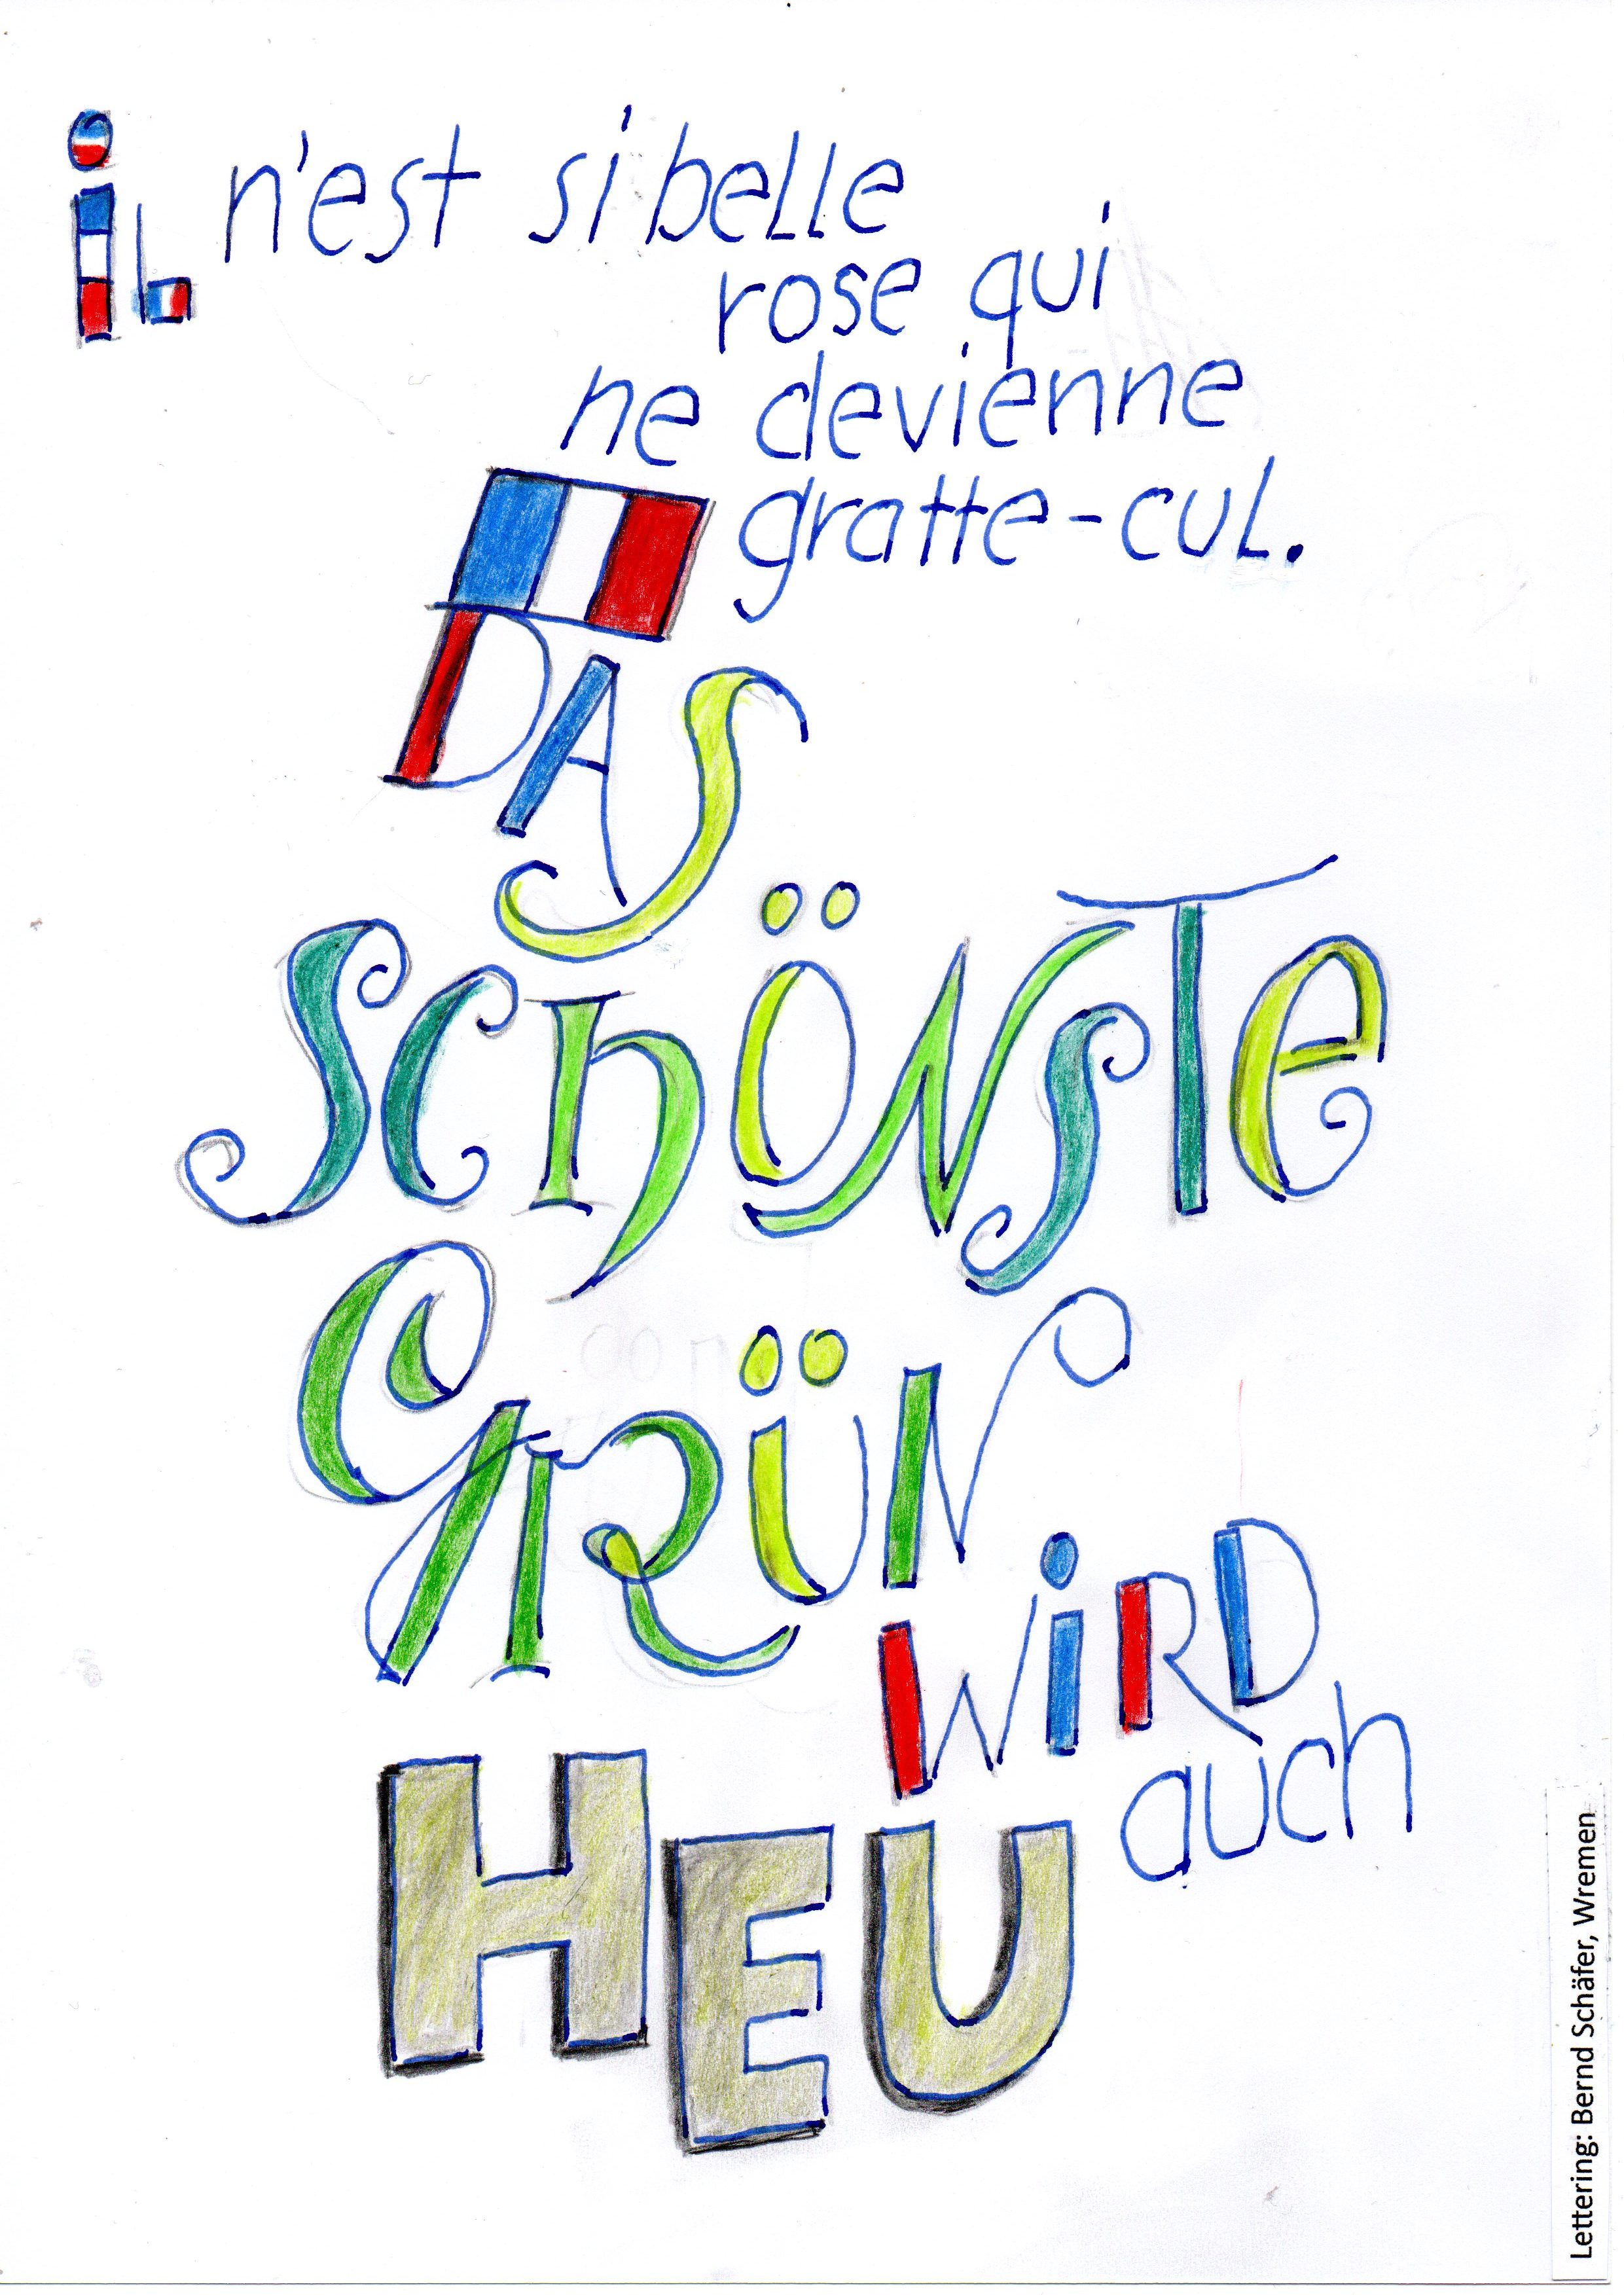 il n'est si belle
rose qui
ne devienne
gratte-cul.
DAS
SCHÖNSTe
GRÜN
WiRD
auch
HEU
Lettering: Bernd Schäfer, Wremen